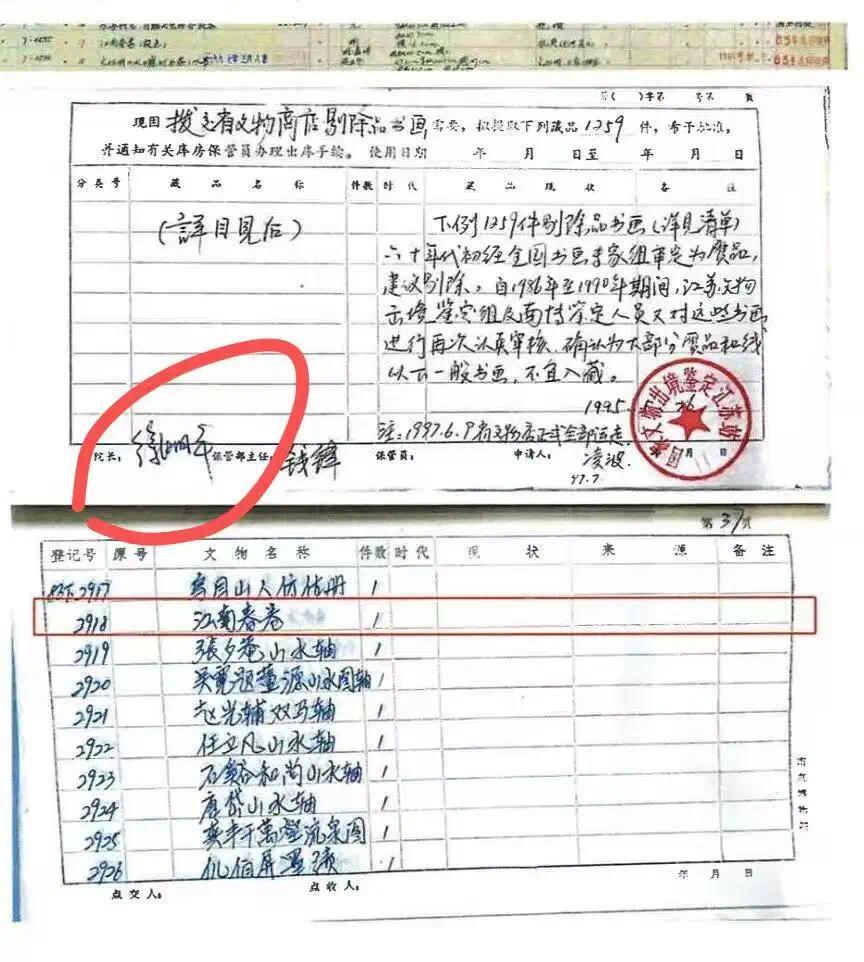 江南春卷
（ ）字第 号第 页
现因 拨交省文物商店剔除品书画 需要，拟提取下列藏品1259件，希予批准，
并通知有关库房保管员办理出库手续。 使用日期 年 月 日至 年 月 日
分类号 藏品名称 件数 时代 藏品现状 备注
（詳目見后）
下例1259件剔除品书画（详見清单）
六十年代初经全国书画专家组审定为赝品，
建议剔除。自1986年至1990年期间，江苏文物
出境鉴定组及南博鉴定人员又对这些书画
进行再次认真审核，确认为大部分赝品和线
以下一般书画，不宜入藏。
1995. 26
注：1997.6.9 省文物店正式全部运走
国家文物出境鉴定江苏站
院长： 徐湖平 保管部主任： 钱锋 保管员： 申请人： 凌波 月 日
97.7.
第37页
登记号 原号 文物名称 件数 时代 现状 来源 备注
2917 方目山人仿倩册 1
2918 江南春卷 1
2919 張夕菴山水轴 1
2920 吴寬题董源山水图轴 1
2921 赵光辅双马轴 1
2922 任立凡山水轴 1
2923 石溪和尚山水轴 1
2924 唐岱山水轴 1
2925 龚半千萬壑流泉图 1
2926 伯屏墨蹟 1
点交人： 点收人： 年 月 日
南京博物院